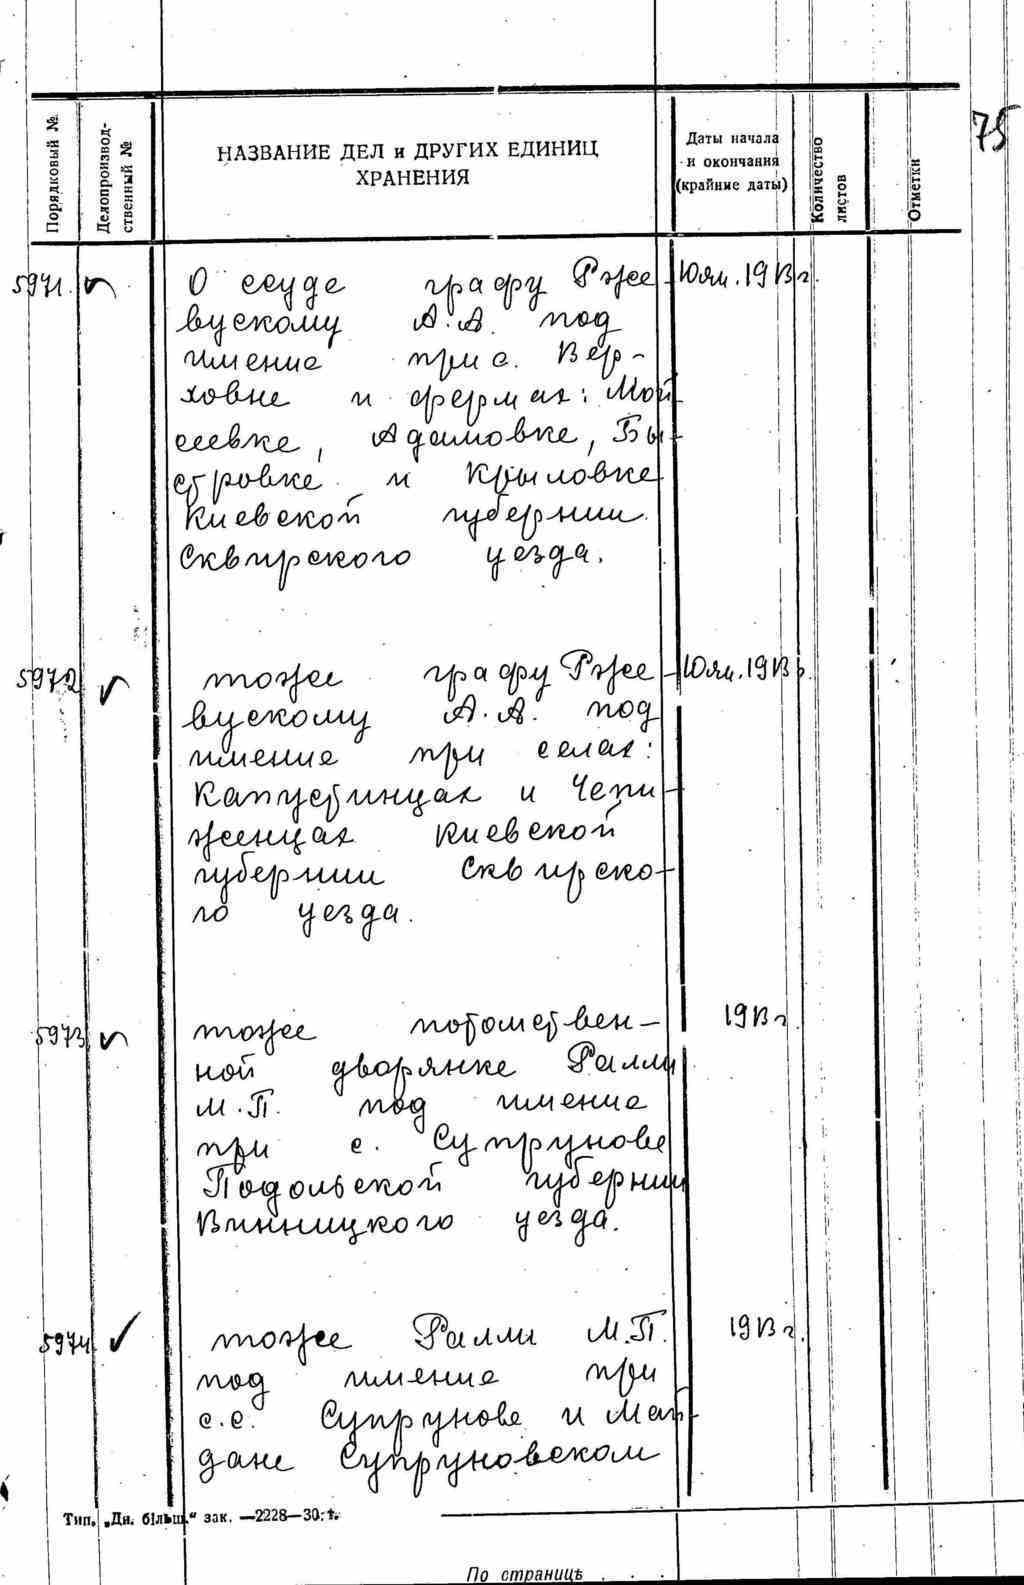 75
Порядковый №.
Делопроизвод-
ственный №
НАЗВАНИЕ ДЕЛ и ДРУГИХ ЕДИНИЦ
ХРАНЕНИЯ
Даты начала
и окончания
(крайние даты)
Количество
листов
Отметки
5971. О ссуде графу Рже Юли. 1913 г.
вускому А.А. под
имение при с. Вер-
ховне и фермах: Мой
сеевке, Адамовке, Бы-
стровке и Крыловке
Киевской губернии
Сквирского уезда.
5972 тоже графу Рже Юли. 1913 г.
вускому А.А. под
имение при селах:
Капустинцах и Чепи-
женцах Киевской
губернии Сквирско-
го уезда.
5973 тоже потомствен- 1913 г.
ной дворянке Ралли
М.П. под имение
при с. Супрунове
Подольской губернии
Винницкого уезда.
5974 тоже Ралли М.П. 1913 г.
под имение при
с.с. Супрунове и Май-
дане Супруновском
Тип. „Дн. більш." зак. —2228—30. т.
По страницѣ . . .